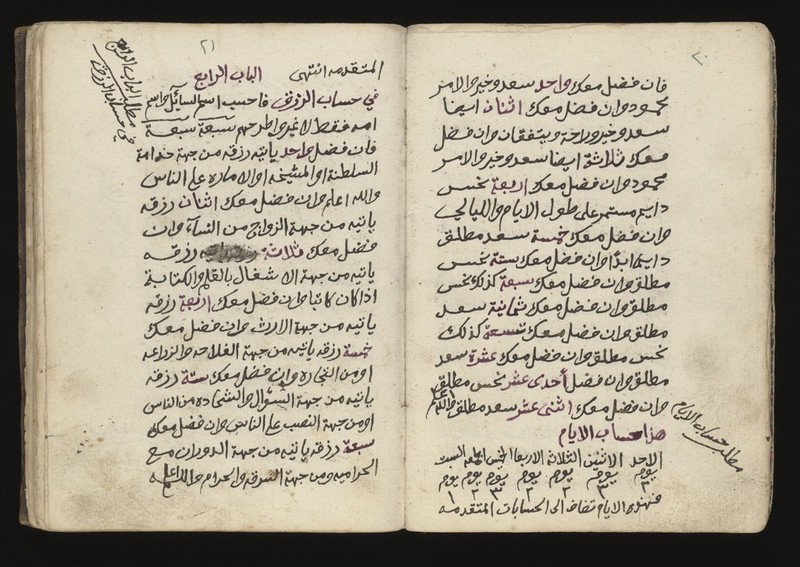 ٢٠
فان فضل معك واحد سعد وخير والامر
محمود وان فضل معك اثنان ايضا
سعد وخير وراحة ويتفقان وان فضل
معك ثلاثة ايضا سعد وخير والامر
محمود وان فضل معك اربعة نحس
دايم مستمر على طول الايام والليالي
وان فضل معك خمسة سعد مطلق
دايما ابدا وان فضل معك ستة نحس
مطلق وان فضل معك سبعة كذلك نحس
مطلق وان فضل معك ثمانية سعد
مطلق وان فضل معك تسعة كذلك
نحس مطلق وان فضل معك عشرة سعد
مطلق وان فضل احدى عشر نحس مطلق
وان فضل معك اثنى عشر سعد مطلق والله اعلم
هذا حساب الايام
مطلب حساب الايام
الاحد الاثنين الثلاثة الاربعا الخميس الجمعه السبت
يوم يوم يوم يوم يوم يوم يوم
فهذه الايام تضاف الى الحسابات المتقدمه
٢١
المتقدمه انتهى الباب الرابع
مطلب الباب الرابع
في حساب الرزق
في حساب الرزق فاحسب اسم السائل واسم
امه فقط لا غير واطرحهم سبعة سبعة
فان فضل واحد ياتيه رزقه من جهة خدامة
السلطنة او المشيخه او الاماره على الناس
والله اعلم وان فضل معك اثنان رزقه
ياتيه من جهة الزواج من النسآء وان
فضل معك ثلاثة رزقه
ياتيه من جهة الاشغال بالقلم والكتابة
اذا كان كاتبا وان فضل معك اربعة رزقه
ياتيه من جهة الارث وان فضل معك
خمسة رزقه ياتيه من جهة الفلاحه والزراعه
او من التجاره وان فضل معك ستة رزقه
ياتيه من جهة السئوال والشحاده من الناس
او من جهة النصب على الناس وان فضل معك
سبعة رزقه ياتيه من جهة الدوران مع
الحراميه ومن جهة السرقه والحرام والله اعلم